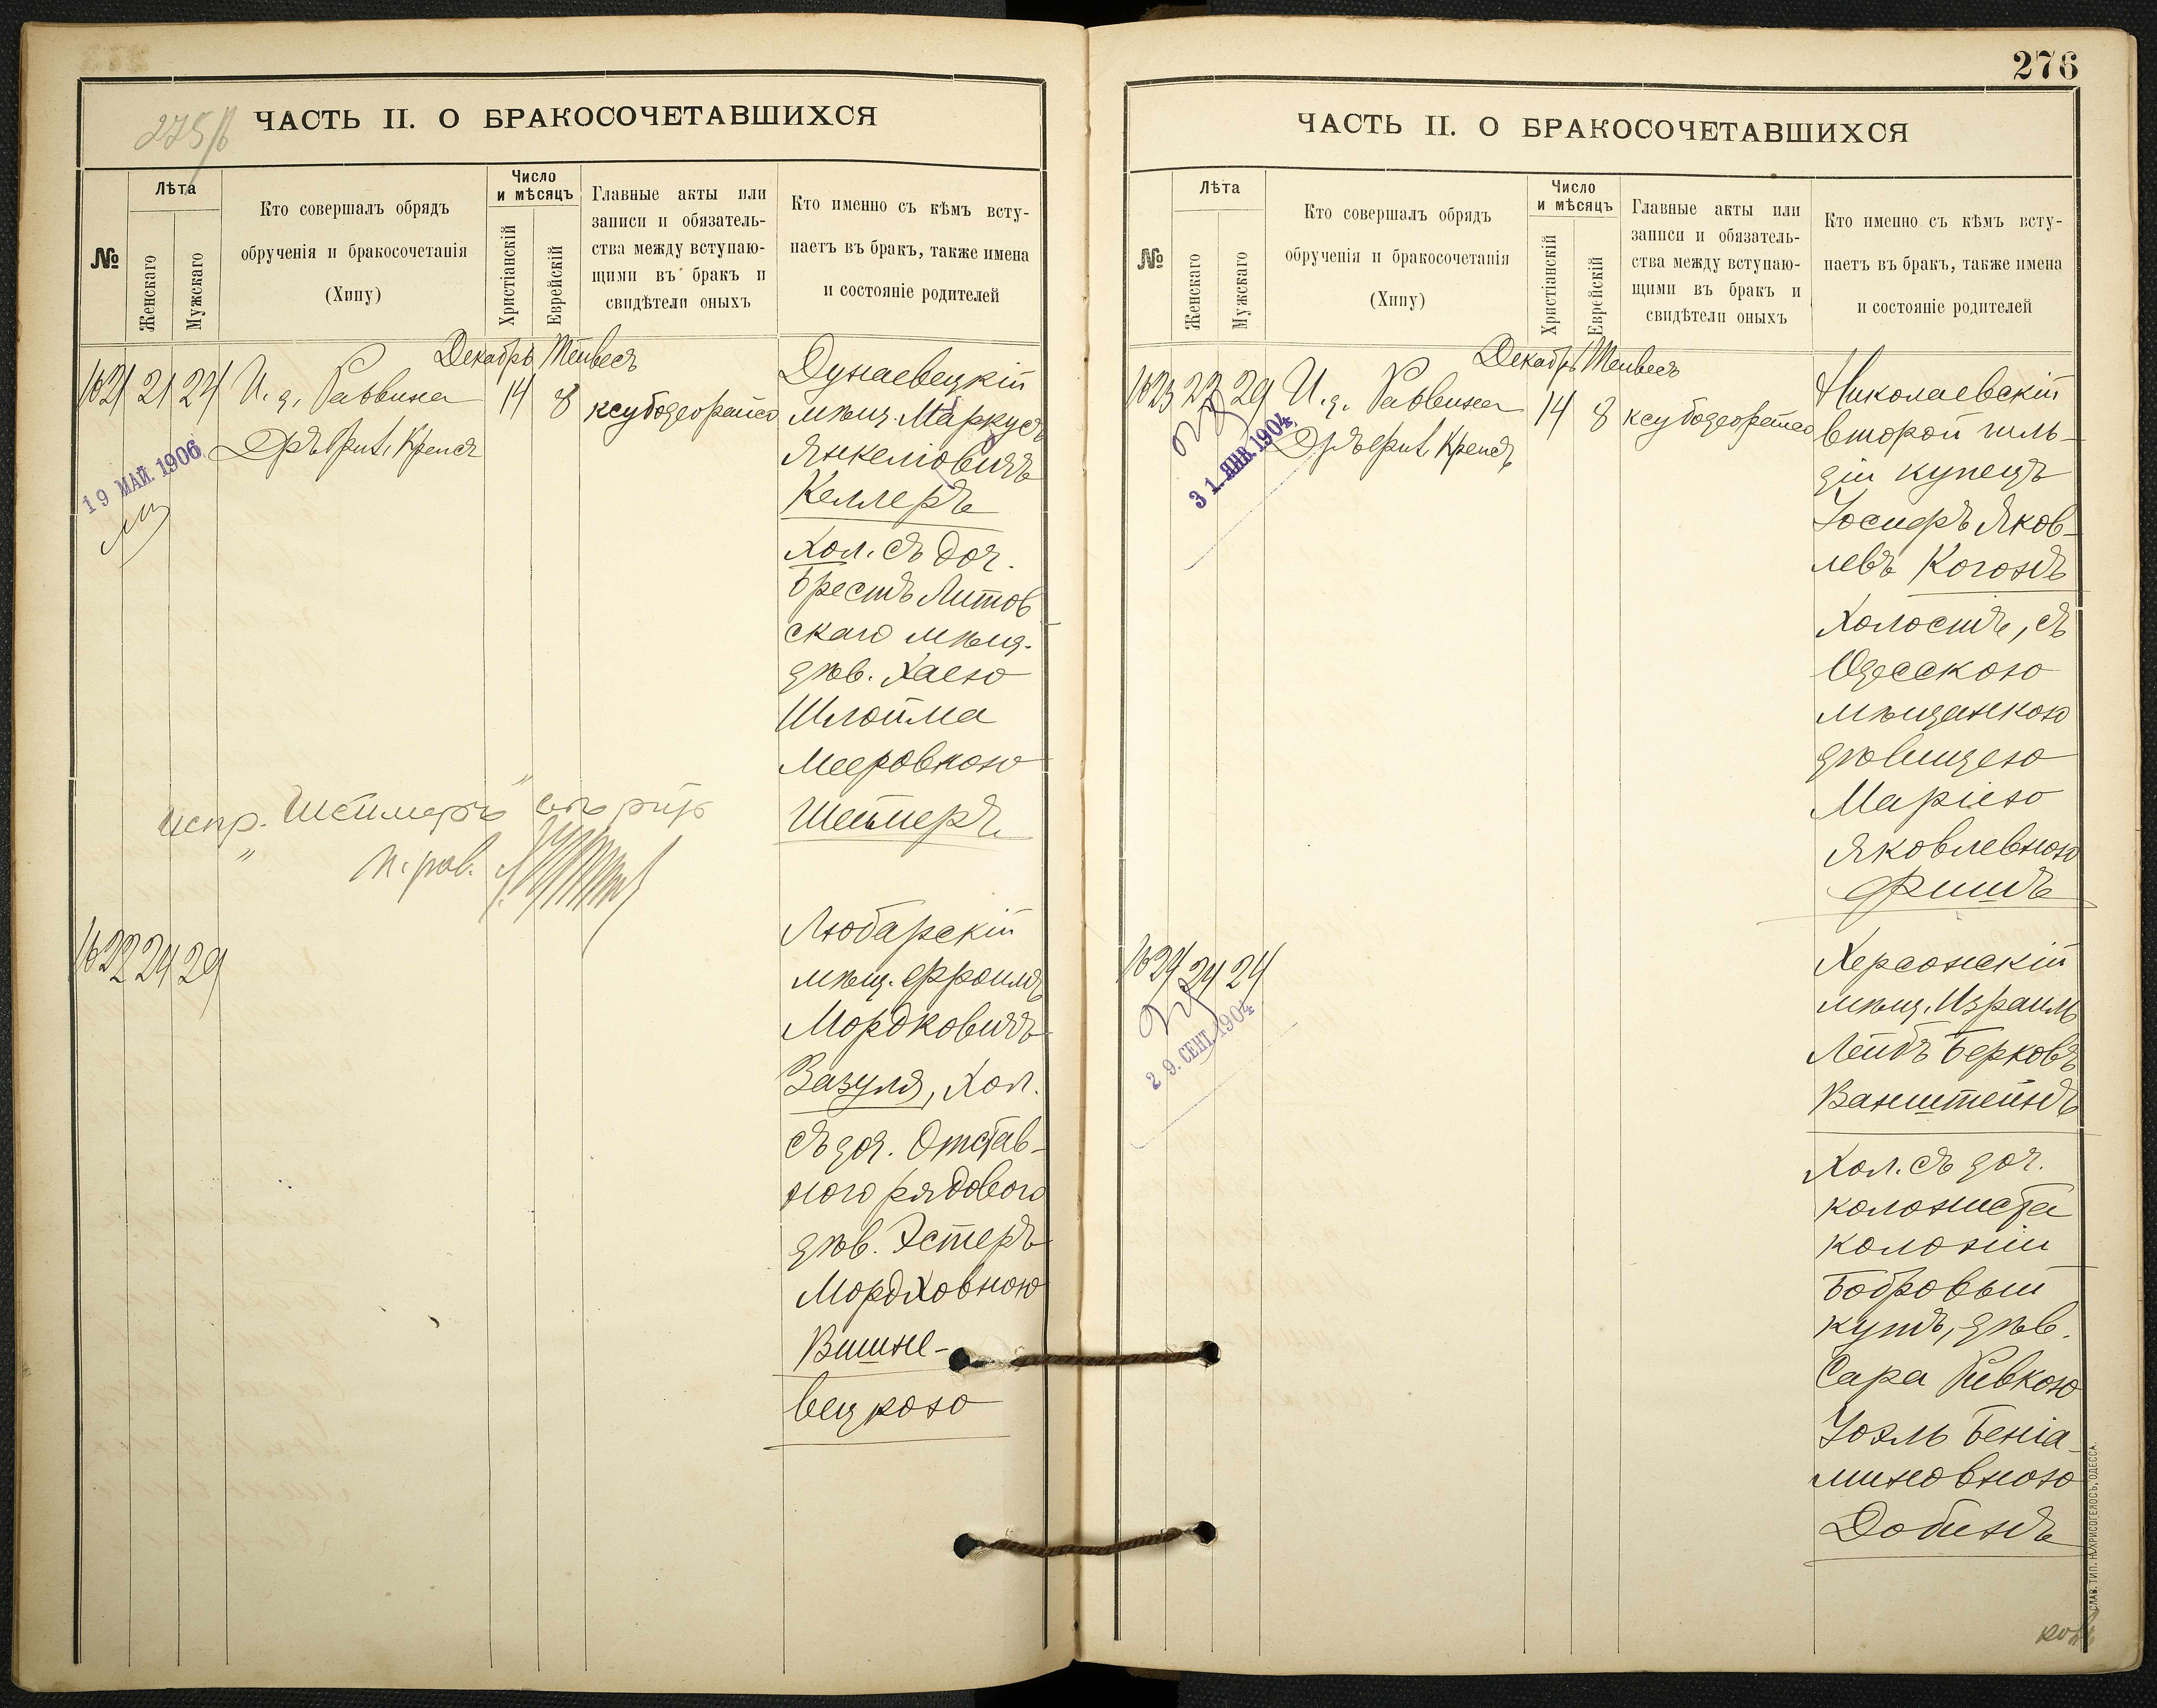 275/б
ЧАСТЬ II. О БРАКОСОЧЕТАВШИХСЯ
№
Лѣта
Женскаго
Мужскаго
Кто совершалъ обрядъ
обрученія и бракосочетанія
(Хипу)
Число
и мѣсяцъ
Христіанскій
Еврейскій
Главные акты или
записи и обязатель-
ства между вступаю-
щими въ бракъ и
свидѣтели оныхъ
Кто именно съ кѣмъ всту-
паетъ въ бракъ, также имена
и состояніе родителей
Декабрь Тейвесъ
1621 21 24 И. д. Раввина 14 8 ксубодеорайсо
Крепсъ
19 МАЙ. 1906
Дунаевецкій
мѣщ. Маркусъ
Янкеліовичъ
Келлеръ
Хол. съ доч.
Брестъ Литов
скаго мѣщ.
дѣв. Хаею
Шлойма
Мееровною
Шеймеръ
испр. "Шеймеръ"
п. рав.
1622 24 29
Любарскій
мѣщ. Фроимъ
Мордковичъ
Зазуля, Хол.
съ доч. Отстав-
ного рядового
дѣв. Эстеръ
Мордховною
Вишне-
вецкою
276
ЧАСТЬ II. О БРАКОСОЧЕТАВШИХСЯ
№
Лѣта
Женскаго
Мужскаго
Кто совершалъ обрядъ
обрученія и бракосочетанія
(Хипу)
Число
и мѣсяцъ
Христіанскій
Еврейскій
Главные акты или
записи и обязатель-
ства между вступаю-
щими въ бракъ и
свидѣтели оныхъ
Кто именно съ кѣмъ всту-
паетъ въ бракъ, также имена
и состояніе родителей
Декабрь Тейвесъ
1623 22 29 И. д. Раввина 14 8 ксубодеорайсо
Крепсъ
31. ЯНВ. 1904
Николаевскій
второй гиль-
діи купецъ
Іосифъ Яков-
левъ Когонъ
Холостъ, съ
Одесскою
мѣщанкою
дѣвицею
Маріею
Яковлевною
Фишъ
1624 24 24
29. СЕНТ. 1904
Херсонскій
мѣщ. Израиль
Лейбъ Берковъ
Ванштейнъ
Хол. съ доч.
колониста
колоніи
Бобровый
кутъ, дѣв.
Сара Ривкою
Іоэль Беніа-
миновною
Добинъ
СЛАВ. ТИП. Н. ХРИСОГЕЛОСЪ, ОДЕССА.